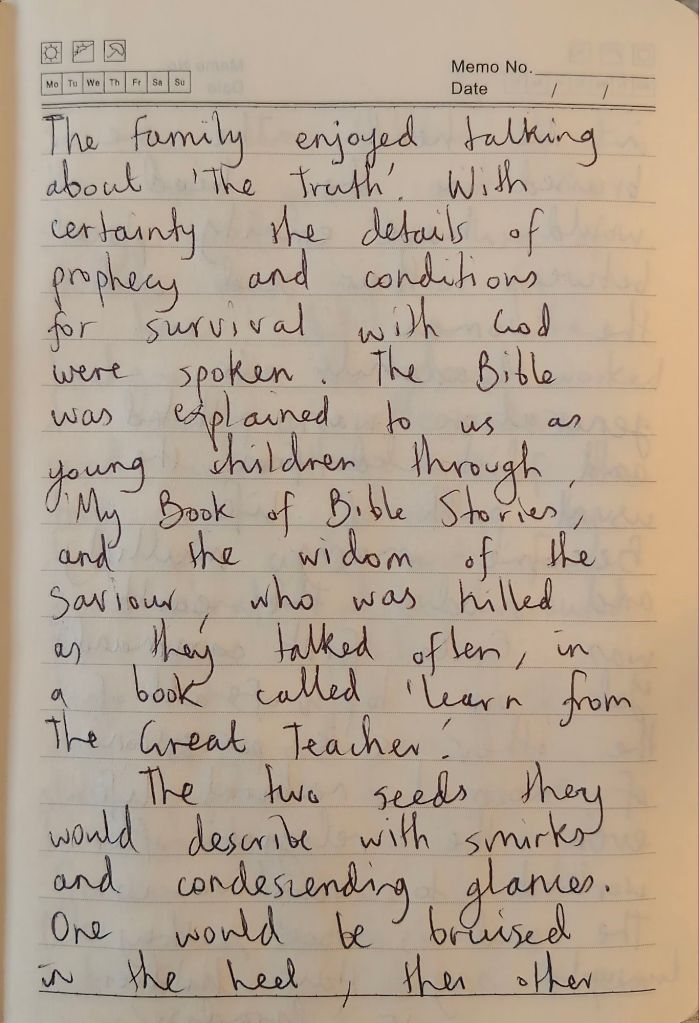 Memo No.
Mo Tu We Th Fr Sa Su
Date / /
The family enjoyed talking
about 'The Truth'. With
certainty the details of
prophecy and conditions
for survival with God
were spoken. The Bible
was explained to us as
young children through,
'My Book of Bible Stories,'
and the widom of the
Saviour, who was killed
as they talked often, in
a book called 'Learn from
The Great Teacher.'
The two seeds they
would describe with smirks
and condescending glances.
One would be bruised
in the heel, ther other